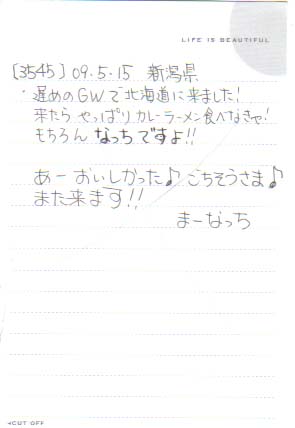 LIFE IS BEAUTIFUL
[3545] 09.5.15 新潟県
・遅めのGWで北海道に来ました!
来たら やっぱり カレーラーメン食べなきゃ!
もちろん なっちですよ!!
あーおいしかった♪ ごちそうさま♪
また来ます!!
まーなっち
◂CUT OFF